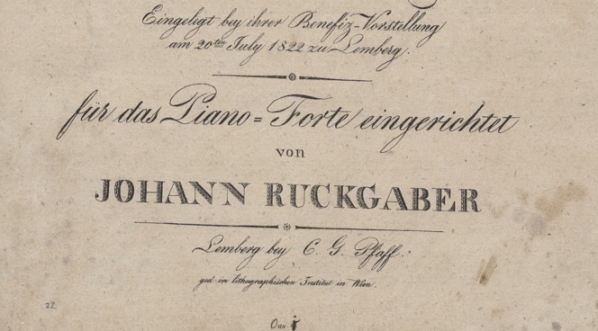 Eingelegt bey ihrer Benefiz-Vorstellung
am 20ten July 1822 zu Lemberg.
für das Piano=Forte eingerichtet
von
JOHANN RUCKGABER
Lemberg bey C. G. Pfaff.
ged. im lithographischen Institut in Wien.
22